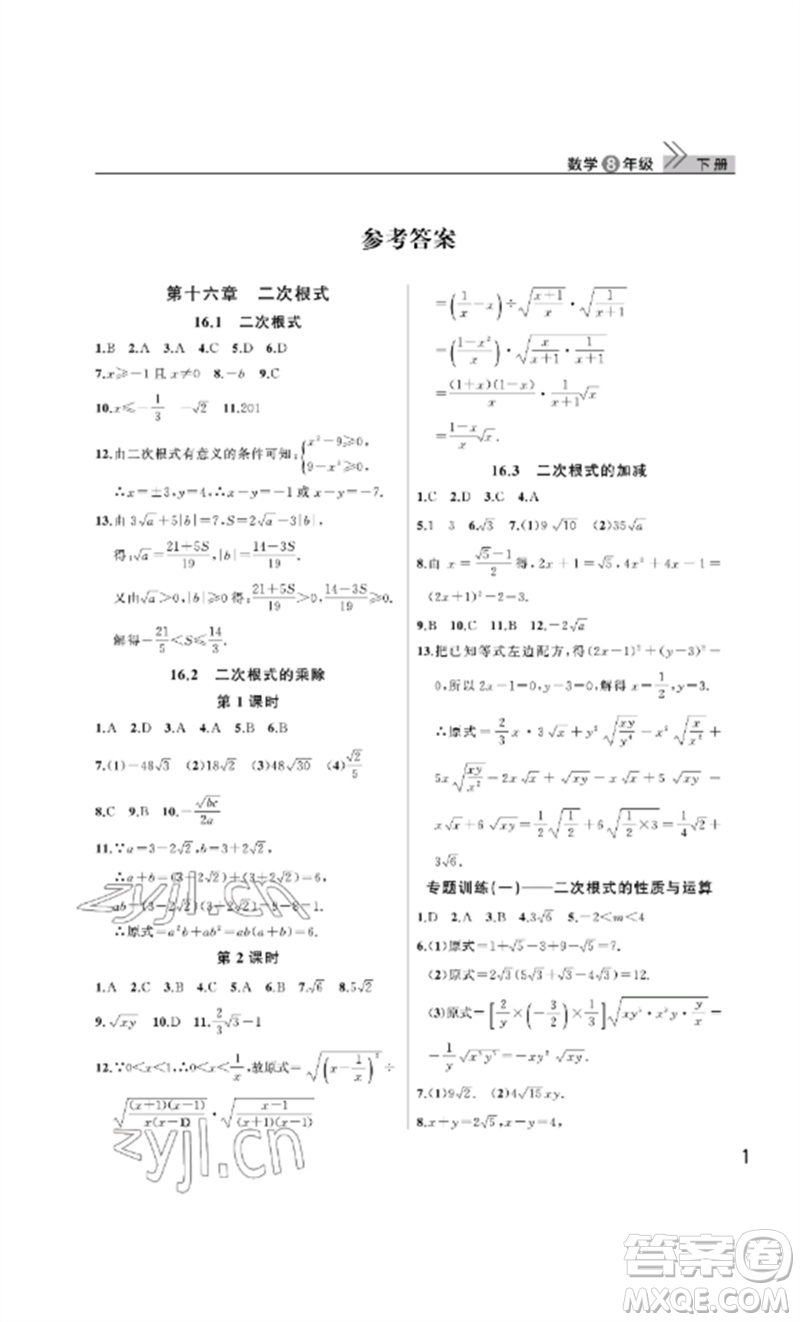 数学8年级 下册
参考答案
第十六章 二次根式
16.1 二次根式
1.B 2.A 3.A 4.C 5.D 6.D
7.x≥-1且x≠0 8.-b 9.C
10.x≤-1/3 -√2 11.201
12.由二次根式有意义的条件可知:{x²-9≥0, 9-x²≥0,
∴x=±3,y=4,∴x-y=-1或x-y=-7.
13.由3√a+5|b|=7,S=2√a-3|b|,
得:√a=(21+5S)/19,|b|=(14-3S)/19
又由√a>0,|b|≥0得:(21+5S)/19>0,(14-3S)/19≥0.
解得-21/5<S≤14/3.
16.2 二次根式的乘除
第1课时
1.A 2.D 3.A 4.A 5.B 6.B
7.(1)-48√3 (2)18√2 (3)48√30 (4)√2/5
8.C 9.B 10.-√bc/2a
11.∵a=3-2√2,b=3+2√2,
∴a+b=(3-2√2)+(3+2√2)=6,
ab=(3-2√2)(3+2√2)=1.
∴原式=a²b+ab²=ab(a+b)=6.
第2课时
1.A 2.D 3.C 4.A 5.A 6.B 7.√6 8.5√2
9.√xy 10.D 11.2/3√3-1
12.∵0<x<1,∴0<x<1/x,故原式=√(x-1/x)²÷
√((x+1)(x-1)/x(x-1))·√((x-1)/(x+1)(x-1))
=(1/x-x)÷√((x+1)/x)·√(1/(x+1))
=((1-x²)/x)·√(x/(x+1))·√(1/(x+1))
=(1+x)(1-x)/x·1/(x+1)√x
=(1-x)/x√x.
16.3 二次根式的加减
1.C 2.D 3.C 4.A
5.1 3 6.√3 7.(1)9√10 (2)35√a
8.由x=(√5-1)/2得,2x+1=√5,4x²+4x-1=
(2x+1)²-2=3.
9.B 10.C 11.B 12.-2√a
13.把已知等式左边配方,得(2x-1)²+(y-3)²=
0,所以2x-1=0,y-3=0,解得x=1/2,y=3.
∴原式=2/3x·3√x+y²√(xy/y⁴)-x²√(x/x²)+
5x√(xy/x²)=2x√x+√xy-x√x+5√xy=
x√x+6√xy=1/2√(1/2)+6√(1/2×3)=1/4√2+
3√6.
专题训练(一)——二次根式的性质与运算
1.D 2.A 3.B 4.3√6 5.-2<m<4
6.(1)原式=1+√5-3+9-√5=7.
(2)原式=2√3(5√3+√3-4√3)=12.
(3)原式=[2/y×(-3/2)×1/3]√(xy⁵·x³y·y/x)=
-1/y√(x³y⁷).
7.(1)9√2. (2)4√15xy.
8.x+y=2√5,x-y=2,
1
zyjl.cn
zyjl.cn
答案卷
MXQE.COM